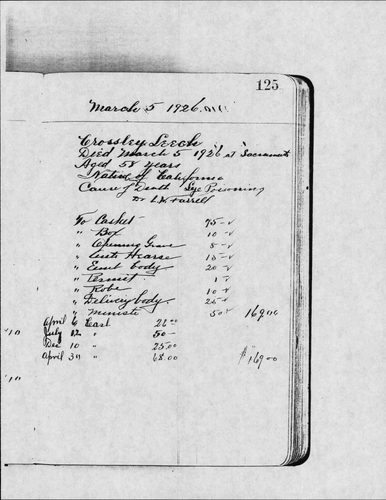 125
March 5 1926
Crossley Leech
Died March 5 1926 at Sacramento
Aged 58 years
Native of California
Cause of Death Lye Poisoning
Dr L.K. Farrell
To Casket 75 -
" Box 10 -
" Opening Grave 8 -
" Auto Hearse 15 -
" Embt body 20 -
" Permit 1
" Robe 10
" Delivery body 25
" Minister 5 169 00
April 6 Cash 26 00
July 12 " 50 -
'10 Dec 10 " 25.00
April 30 " 68.00 $169 00
'10